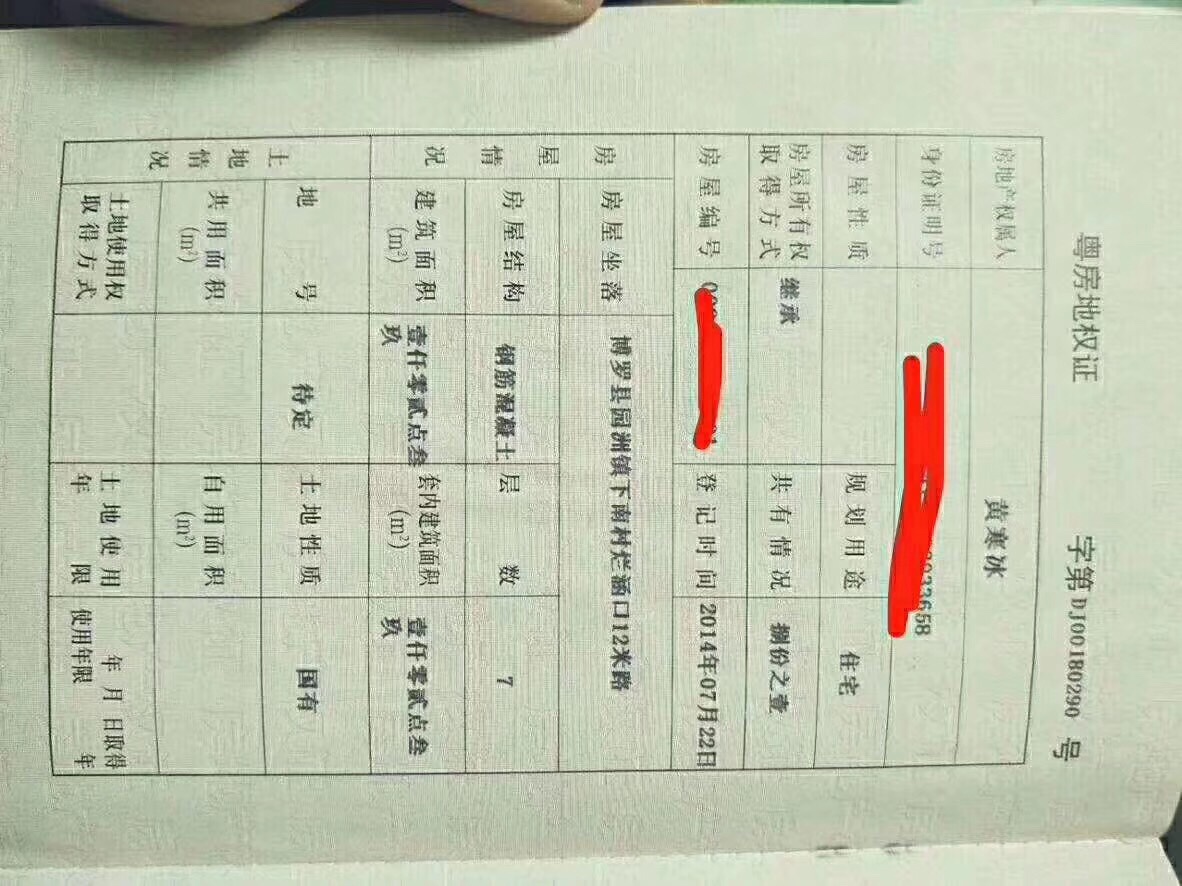 粤房地权证 字第DJ00180290 号
房地产权属人 黄寒冰
身份证明号 33658
房屋性质 规划用途 住宅
房屋所有权取得方式 继承 共有情况 捌份之壹
房屋编号 登记时间 2014年07月22日
房屋情况
房屋坐落 博罗县园洲镇下南村烂涵口12米路
房屋结构 钢筋混凝土 层数 7
建筑面积(m²) 壹仟零贰点叁玖 套内建筑面积(m²) 壹仟零贰点叁玖
土地情况
地号 待定 土地性质 国有
共用面积(m²) 自用面积(m²)
土地使用权取得方式 土地使用年限 年 月 日取得
使用年限 年